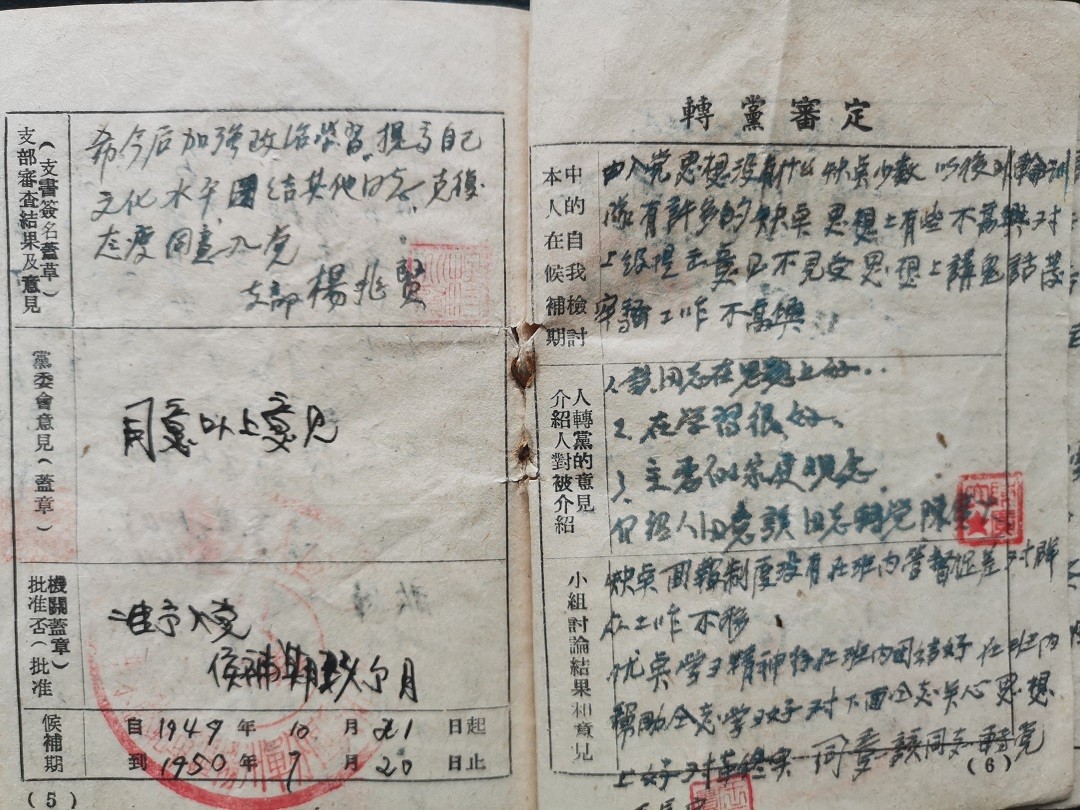 支部審查結果及意見
(支書簽名蓋章)
希今后加強政治学習,提高自己
文化水平,團结其他同志,克復
态度同意入党
支部 楊兆賢
黨委會意見(蓋章)
同意以上意見
批准否(批准
機關蓋章)
准予入党
侯補期 个月
候補期
自1949年10月21日起
到1950年7月20日止
(5)
轉黨審定
本人在候補期
中的自我檢討
入党思想没有什么缺点少数 以後对
隊有許多的缺点 思想上有些不高興对
上级提去意见不見受思想上講鬼話發
牢騷工作不高興
介紹人對被介紹
人轉黨的意見
1、該同志在思想上好..
2、在学習很好、
3、主要的 观念
介紹人同意該同志轉党 陳
小組討論結果和意見
缺点 回報制度没有在班内管督促差 对群
众工作不够
优点学习精神好在班内团结好 在班内
幫助仝志学习好对下面仝志关心 思想
上好 对革 同意該同志轉党
(6)